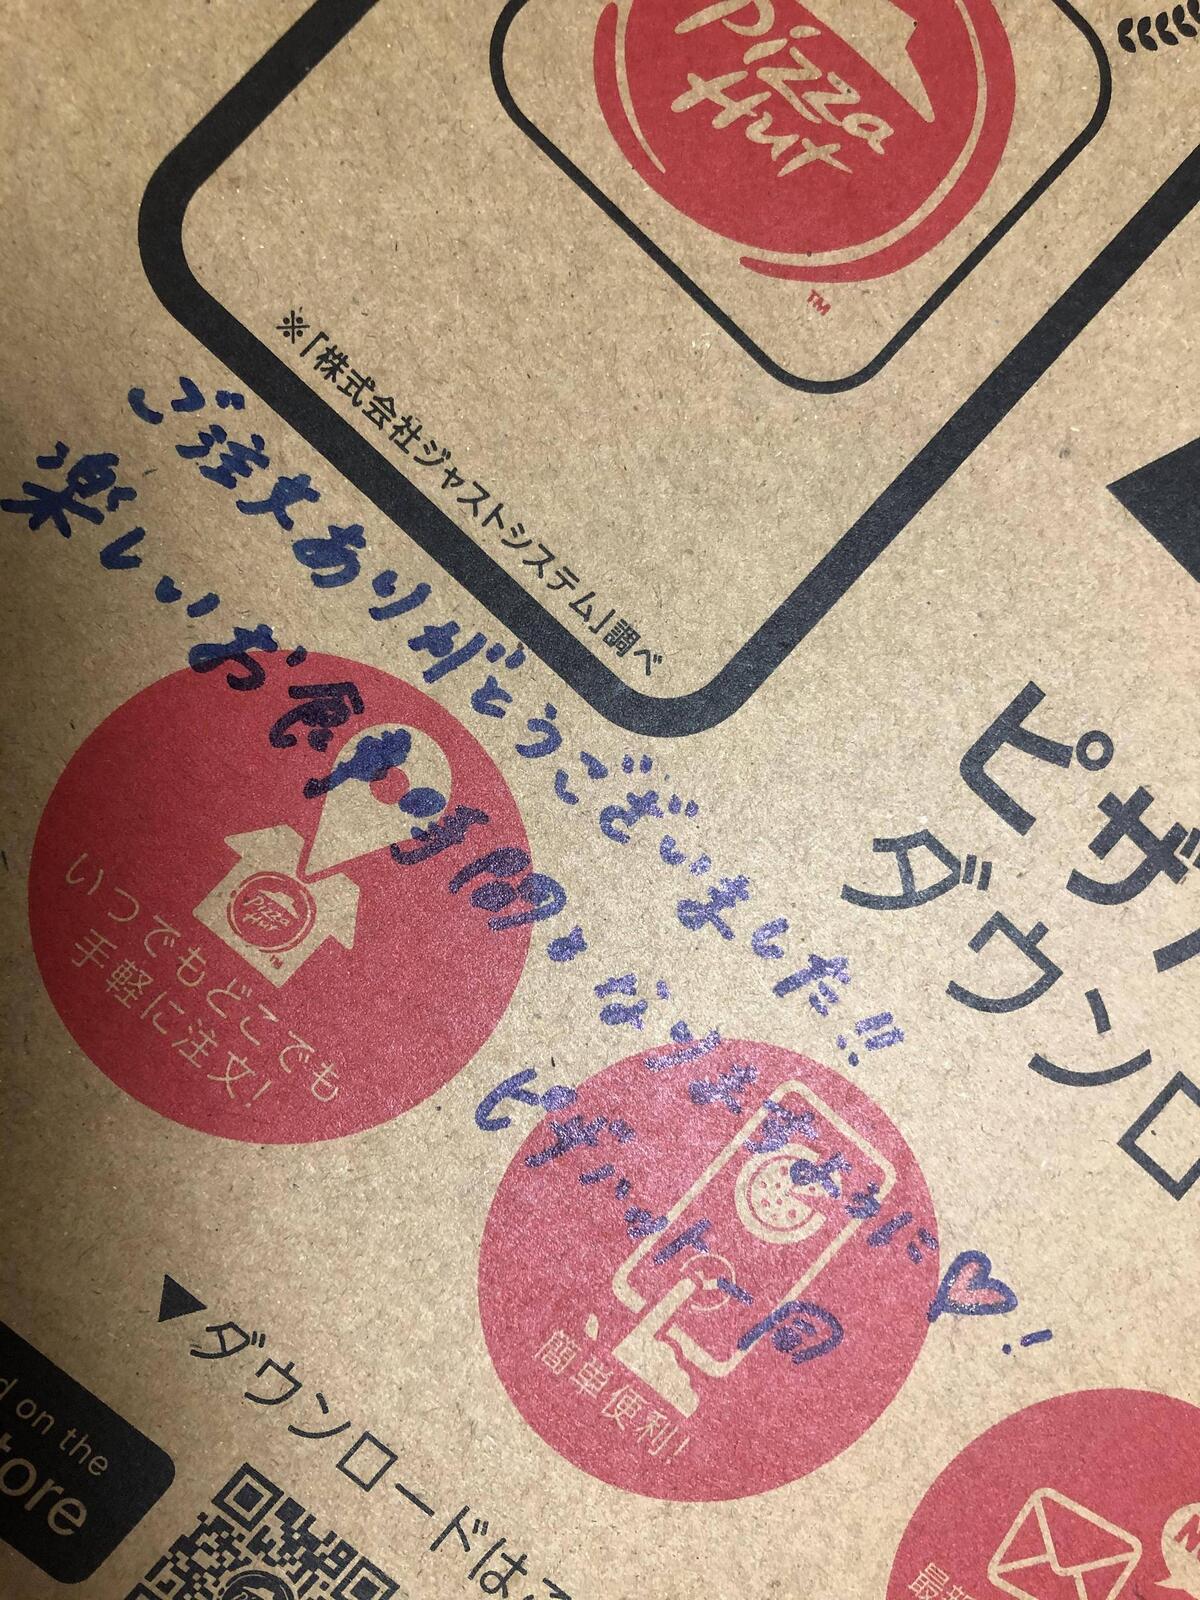 Pizza
Hut
TM
※「株式会社ジャストシステム」調べ
ご注文ありがとうございました!!
楽しいお食事の時間となりますように♡!
ピザハット一同
ピザ
ダウンロ
Pizza
Hut
いつでもどこでも
手軽に注文!
簡単便利!
▼ダウンロードは
on the
tore
最新